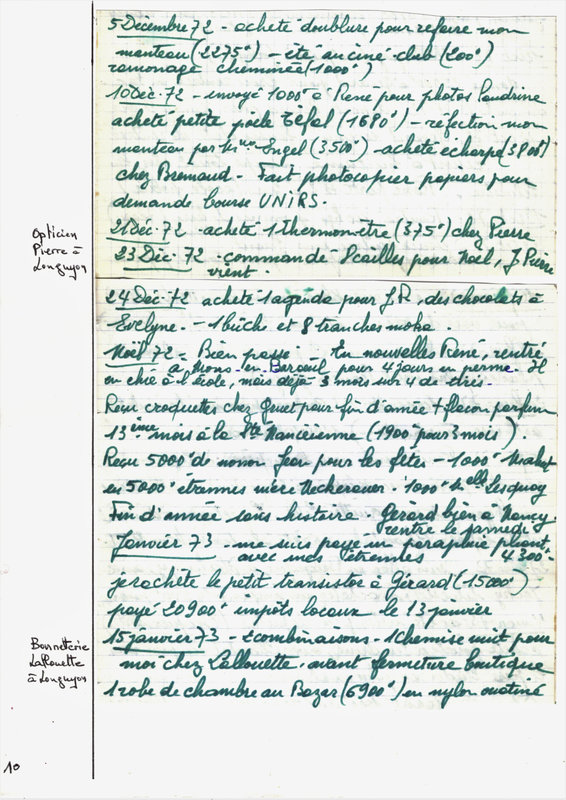 5 Décembre 72 - acheté doublure pour refaire mon
manteau (2275°) - été au ciné club (200°)
ramonage cheminée (1000°)
10 Déc. 72 - envoyé 1000° à René pour photos Sandrine
acheté petite poële Téfal (1680°) - réfection mon
manteau par Mme Engel (3500°) - acheté écharpe (3800°)
chez Bremaud - Fait photocopier papiers pour
demande bourse UNIRS.
21 Déc. 72 - acheté 1 thermomètre (375°) chez Pierre
Opticien
Pierre à
Longuyon
23 Déc. 72 - commandé 8 cailles pour Noël, J. Pierre
vient.
24 Déc. 72 acheté 1 agenda pour J.P., des chocolats à
Evelyne. - 1 bûche et 8 tranches moka.
Noël 72 - Bien passé - Eu nouvelles René, rentré
à Mons-en-Baroeul pour 4 jours en perme. Il
en chie à l'école, mais déjà 3 mois sur 4 de tirés.
Reçu croquettes chez Gruet pour fin d'année + flacon parfum
13ème mois à la Sté Nancéienne (1900 pour 3 mois).
Reçu 5000° de nonon Jean pour les fêtes - 1000°
en 5000° étrennes mère Neckerauer - 1000° Melle Lesquoy
Fin d'année sans histoire. Gérard bien à Nancy
rentre le samedi
Janvier 73 - me suis payé un parapluie pliant
avec mes étrennes 4.300°-
je rachète le petit transistor à Gérard (15000°)
payé 20900° impôts locaux le 13 janvier
15 janvier 73 - 2 combinaisons - 1 chemise nuit pour
moi chez Lallouette, avant fermeture boutique
Bonneterie
Lallouette
à Longuyon
1 robe de chambre au Bazar (6900°) en nylon ouatiné
10